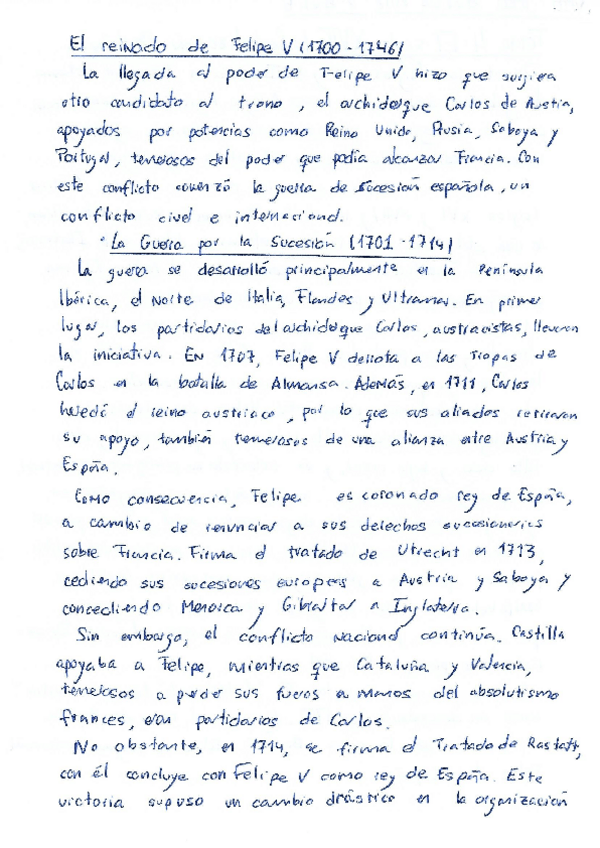 El reinado de Felipe V (1700 - 1746)
La llegada al poder de Felipe V hizo que surgiera
otro candidato al trono, el archiduque Carlos de Austria,
apoyados por potencias como Reino Unido, Prusia, Saboya y
Portugal, temerosos del poder que podía alcanzar Francia. Con
este conflicto comenzó la guerra de sucesión española, un
conflicto civel e internacional.
· La Guerra por la Sucesión (1701 - 1714)
La guerra se desarrolló principalmente en la Península
Ibérica, el Norte de Italia, Flandes y Ultramar. En primer
lugar, los partidarios del archiduque Carlos, austracistas, llevaron
la iniciativa. En 1707, Felipe V derrota a las tropas de
Carlos en la batalla de Almansa. Además, en 1711, Carlos
heredó el reino austriaco, por lo que sus aliados retiraron
su apoyo, también temerosos de una alianza entre Austria y
España.
Como consecuencia, Felipe es coronado rey de España,
a cambio de renunciar a sus derechos sucesionarios
sobre Francia. Firma el tratado de Utrecht en 1713,
cediendo sus sucesiones europeas a Austria y Saboya y
concediendo Menorca y Gibraltar a Inglaterra.
Sin embargo, el conflicto nacional continúa. Castilla
apoyaba a Felipe, mientras que Cataluña y Valencia,
temerosos a perder sus fueros a manos del absolutismo
frances, eran partidarios de Carlos.
No obstante, en 1714, se firma el Tratado de Rastatt,
con él concluye con Felipe V como rey de España. Este
victoria supuso un cambio drástico en la organización